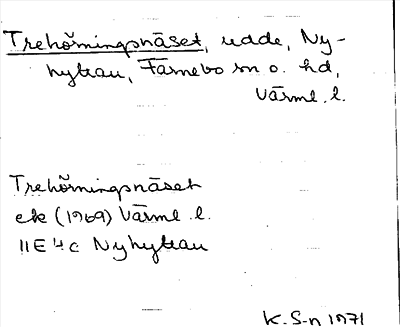 Trehörningsnäset, udde, Ny-
hyttan, Färnebo sn o. hd,
Värml. l.
Trehörningsnäset
ek (1969) Värml. l.
11E 4c Nyhyttan
K. S-n 1971